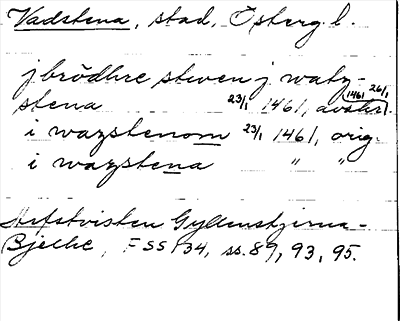 Vadstena, stad, Östergl.
j brödhre steven j watz-
stena 23/1 1461, avskr. 1461 26/1
i wazstenom 23/1 1461, orig.
i wazstena " "
Arfstvisten Gyllenstjerna-
Bjelke, FSS 34, ss. 89, 93, 95.